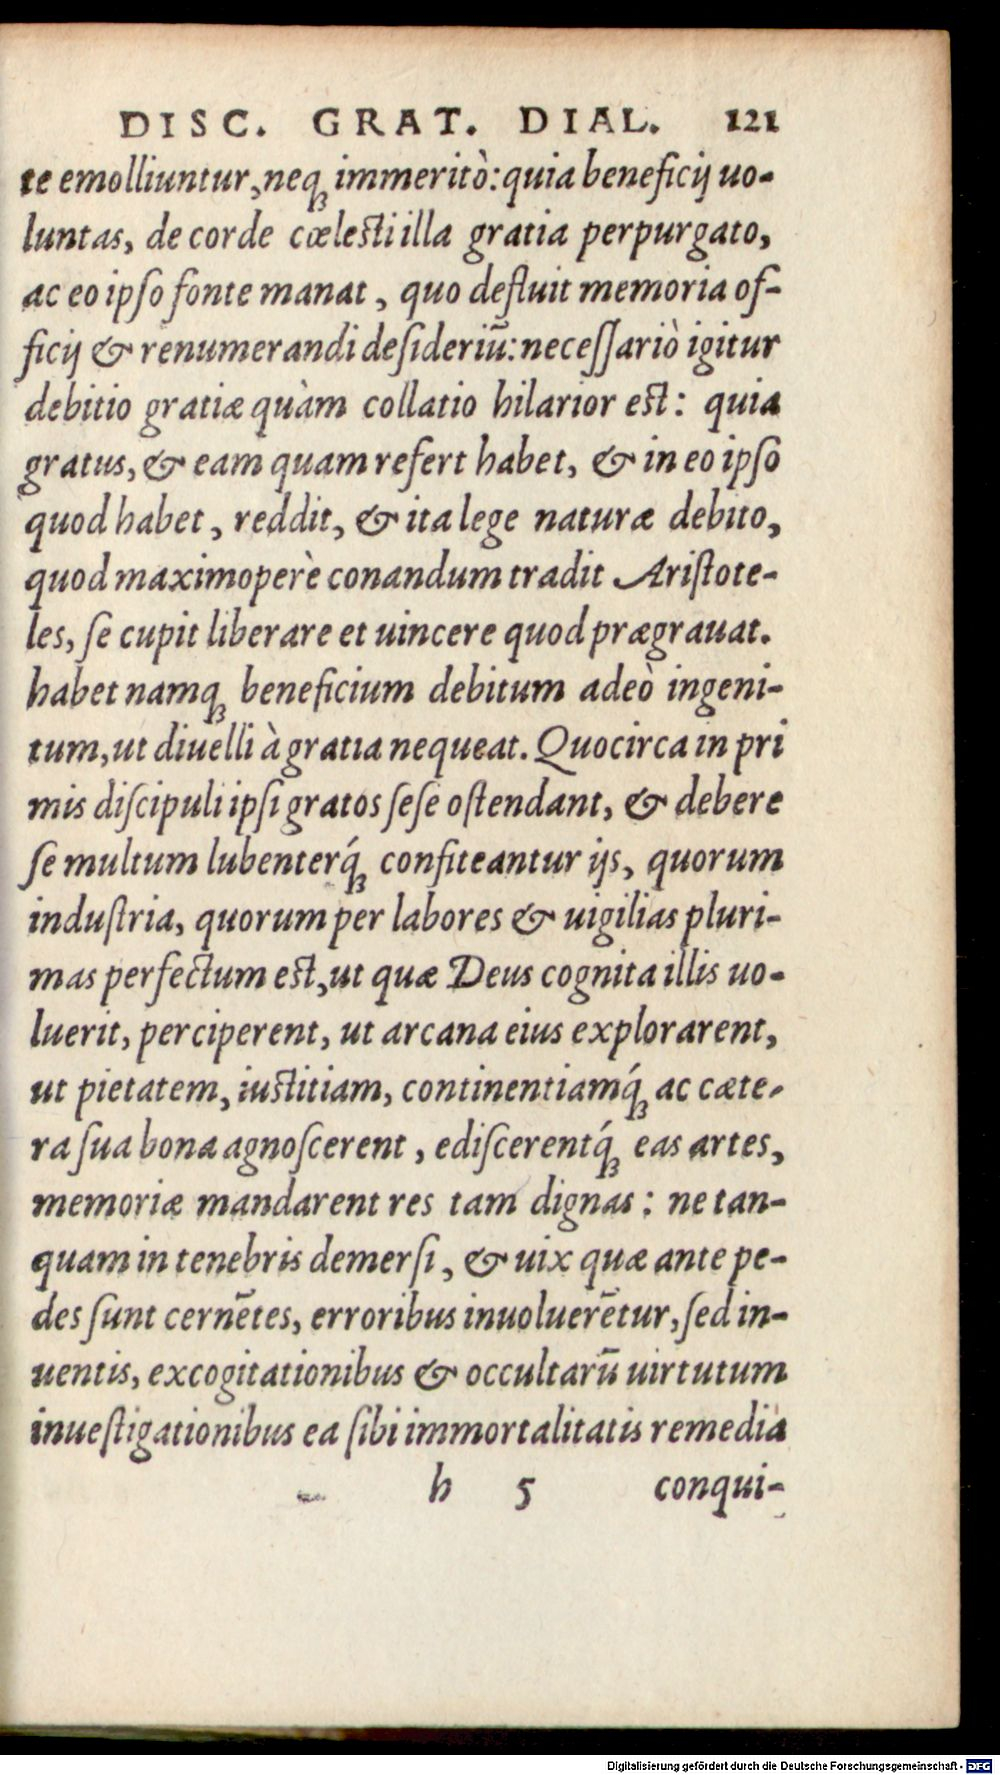 DISC. GRAT. DIAL. 121
te emolliuntur, neq; immeritò: quia beneficij uo-
luntas, de corde cœlesti illa gratia perpurgato,
ac eo ipſo fonte manat, quo defluit memoria of-
ficij & renumerandi deſideriũ: neceſſariò igitur
debitio gratiæ quàm collatio hilarior est: quia
gratus, & eam quam refert habet, & in eo ipſo
quod habet, reddit, & ita lege naturæ debito,
quod maximoperè conandum tradit Ariſtote-
les, ſe cupit liberare et uincere quod prægrauat.
habet namq; beneficium debitum adeò ingeni-
tum, ut diuelli à gratia nequeat. Quocirca in pri
mis diſcipuli ipſi gratos ſeſe oſtendant, & debere
ſe multum lubenterq́; confiteantur ijs, quorum
induſtria, quorum per labores & uigilias pluri-
mas perfectum est, ut quæ Deus cognita illis uo-
luerit, perciperent, ut arcana eius explorarent,
ut pietatem, iustitiam, continentiamq́; ac cæte-
ra ſua bona agnoſcerent, ediſcerentq́; eas artes,
memoriæ mandarent res tam dignas: ne tan-
quam in tenebris demerſi, & uix quæ ante pe-
des ſunt cernẽtes, erroribus inuoluerẽtur, ſed in-
uentis, excogitationibus & occultarũ uirtutum
inueſtigationibus ea ſibi immortalitatis remedia
h 5 conqui-
Digitalisierung gefördert durch die Deutsche Forschungsgemeinschaft - DFG